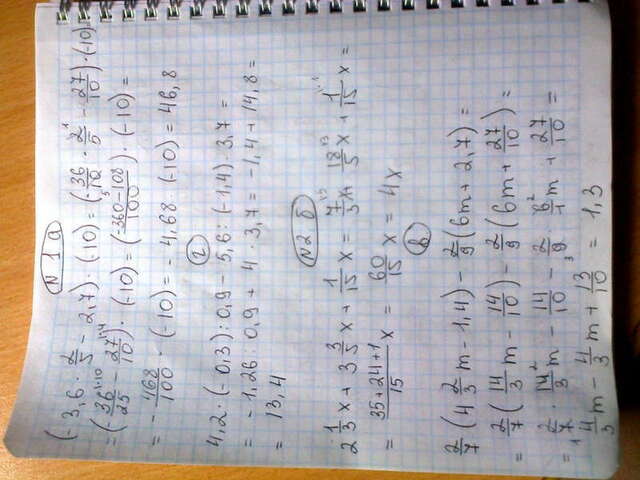 N1 а
(-3,6 · 2/5 - 2,7) · (-10) = (-36/10 · 2/5 - 27/10) · (-10)
= (-36/25 - 27/10) · (-10) = (-360-108/100) · (-10) =
= -468/100 · (-10) = -4,68 · (-10) = 46,8
г
4,2 · (-0,3) : 0,9 - 5,6 : (-1,4) · 3,7 =
= -1,26 : 0,9 + 4 · 3,7 = -1,4 + 14,8 =
= 13,4
N2 б
2 1/3 x + 3 3/5 x + 1/15 x = 7/3 x + 18/5 x + 1/15 x =
= 35+24+1/15 x = 60/15 x = 4x
в
2/7 (4 2/3 m - 1,4) - 2/9 (6m + 2,7) =
= 2/7 (14/3 m - 14/10) - 2/9 (6m + 27/10) =
= 2/7 · 14/3 m - 14/10 - 2/9 · 6/1 m + 27/10 =
4/3 m - 4/3 m + 13/10 = 1,3